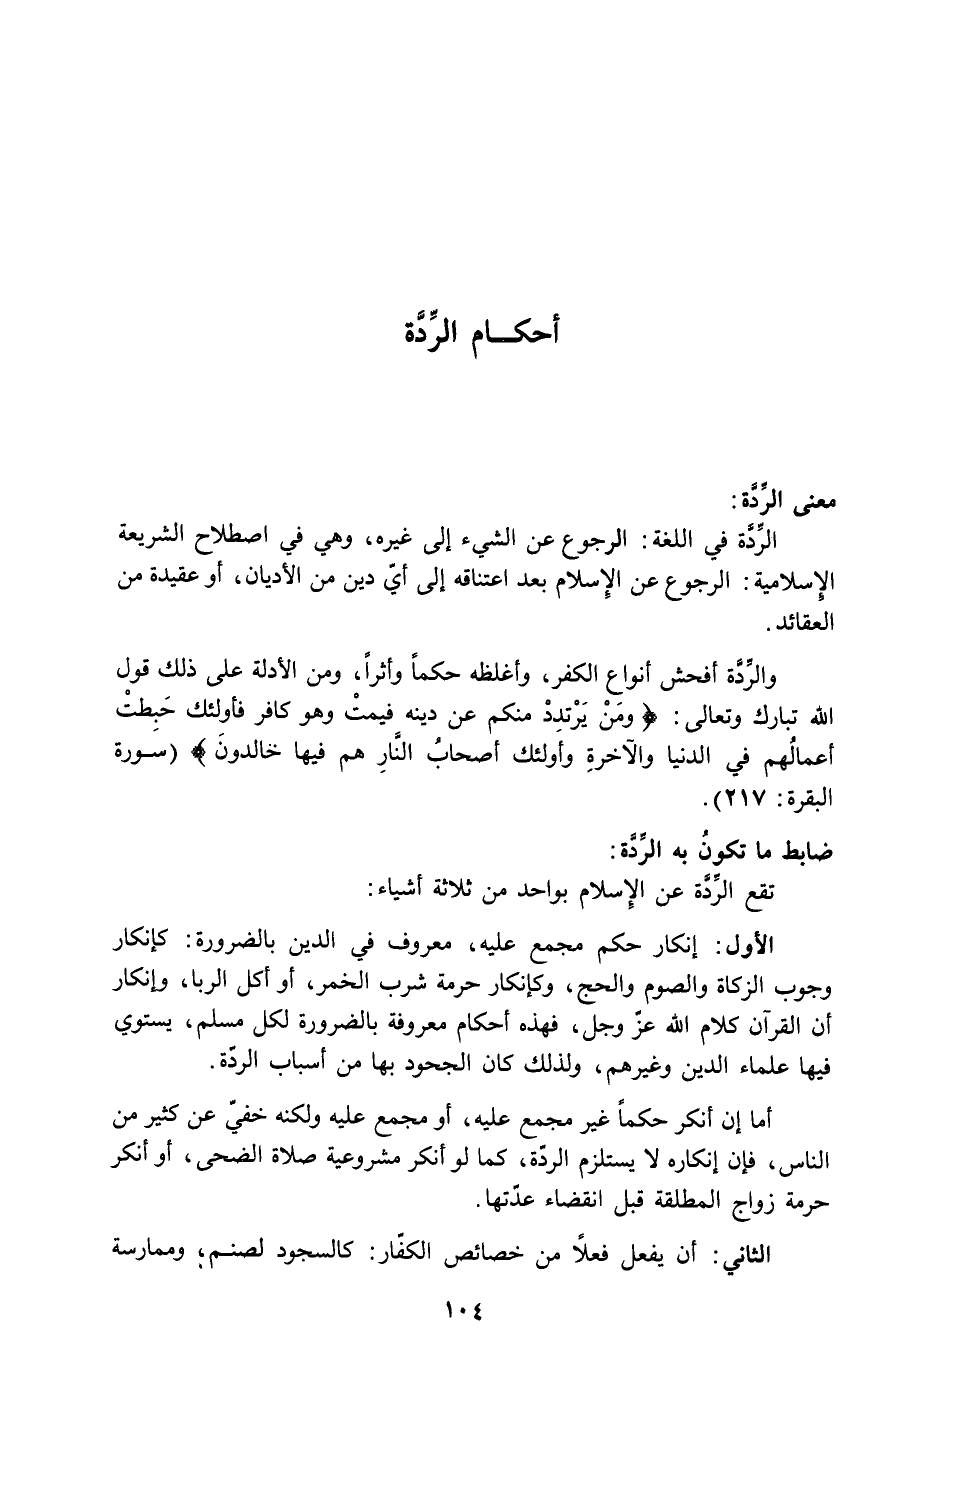 أحكـــام الرِّدَّة
معنى الرِّدَّة:
الرِّدَّة في اللغة: الرجوع عن الشيء إلى غيره، وهي في اصطلاح الشريعة
الإِسلامية: الرجوع عن الإِسلام بعد اعتناقه إلى أيّ دين من الأديان، أو عقيدة من
العقائد.
والرِّدَّة أفحش أنواع الكفر، وأغلظه حكماً وأثراً، ومن الأدلة على ذلك قول
الله تبارك وتعالى: ﴿ ومَنْ يَرْتدِدْ منكم عن دينه فيمتْ وهو كافر فأولئك حَبِطتْ
أعمالُهم في الدنيا والآخرةِ وأولئك أصحابُ النَّارِ هم فيها خالدونَ ﴾ (سـورة
البقرة: ٢١٧).
ضابط ما تكونُ به الرِّدَّة:
تقع الرِّدَّة عن الإِسلام بواحد من ثلاثة أشياء:
الأول: إنكار حكم مجمع عليه، معروف في الدين بالضرورة: كإنكار
وجوب الزكاة والصوم والحج، وكإنكار حرمة شرب الخمر، أو أكل الربا، وإنكار
أن القرآن كلام الله عزّ وجل، فهذه أحكام معروفة بالضرورة لكل مسلم، يستوي
فيها علماء الدين وغيرهم، ولذلك كان الجحود بها من أسباب الردّة.
أما إن أنكر حكماً غير مجمع عليه، أو مجمع عليه ولكنه خفيّ عن كثير من
الناس، فإن إنكاره لا يستلزم الردّة، كما لو أنكر مشروعية صلاة الضحى، أو أنكر
حرمة زواج المطلقة قبل انقضاء عدّتها.
الثاني: أن يفعل فعلاً من خصائص الكفّار: كالسجود لصنـم، وممارسة
١٠٤